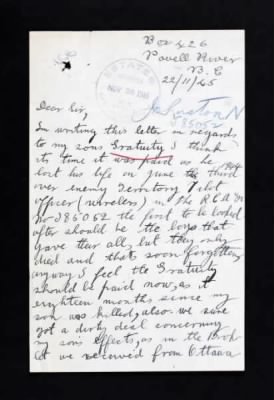 Box 426
Powell River
B.C
22/11/45
ESTATES
NOV 26 1945
Johnston N
J 85052
Dear Sir,
In writing this letter in regards
to my sons Gratuity I think
its time it was paid as he
lost his life on June the third 1944
over enemy Territory Pilot
officer (wireless) in the R.C.A.F
no J85052 the first to be looked
after should be the boys that
gave their all, but they only
died and that soon forgotten,
anyway I feel the Gratuity
should be paid now, as it
eighteen months since my
son was killed, also we sure
got a dirty deal concerning
my son's effects, as in the Book
let we received from Ottawa